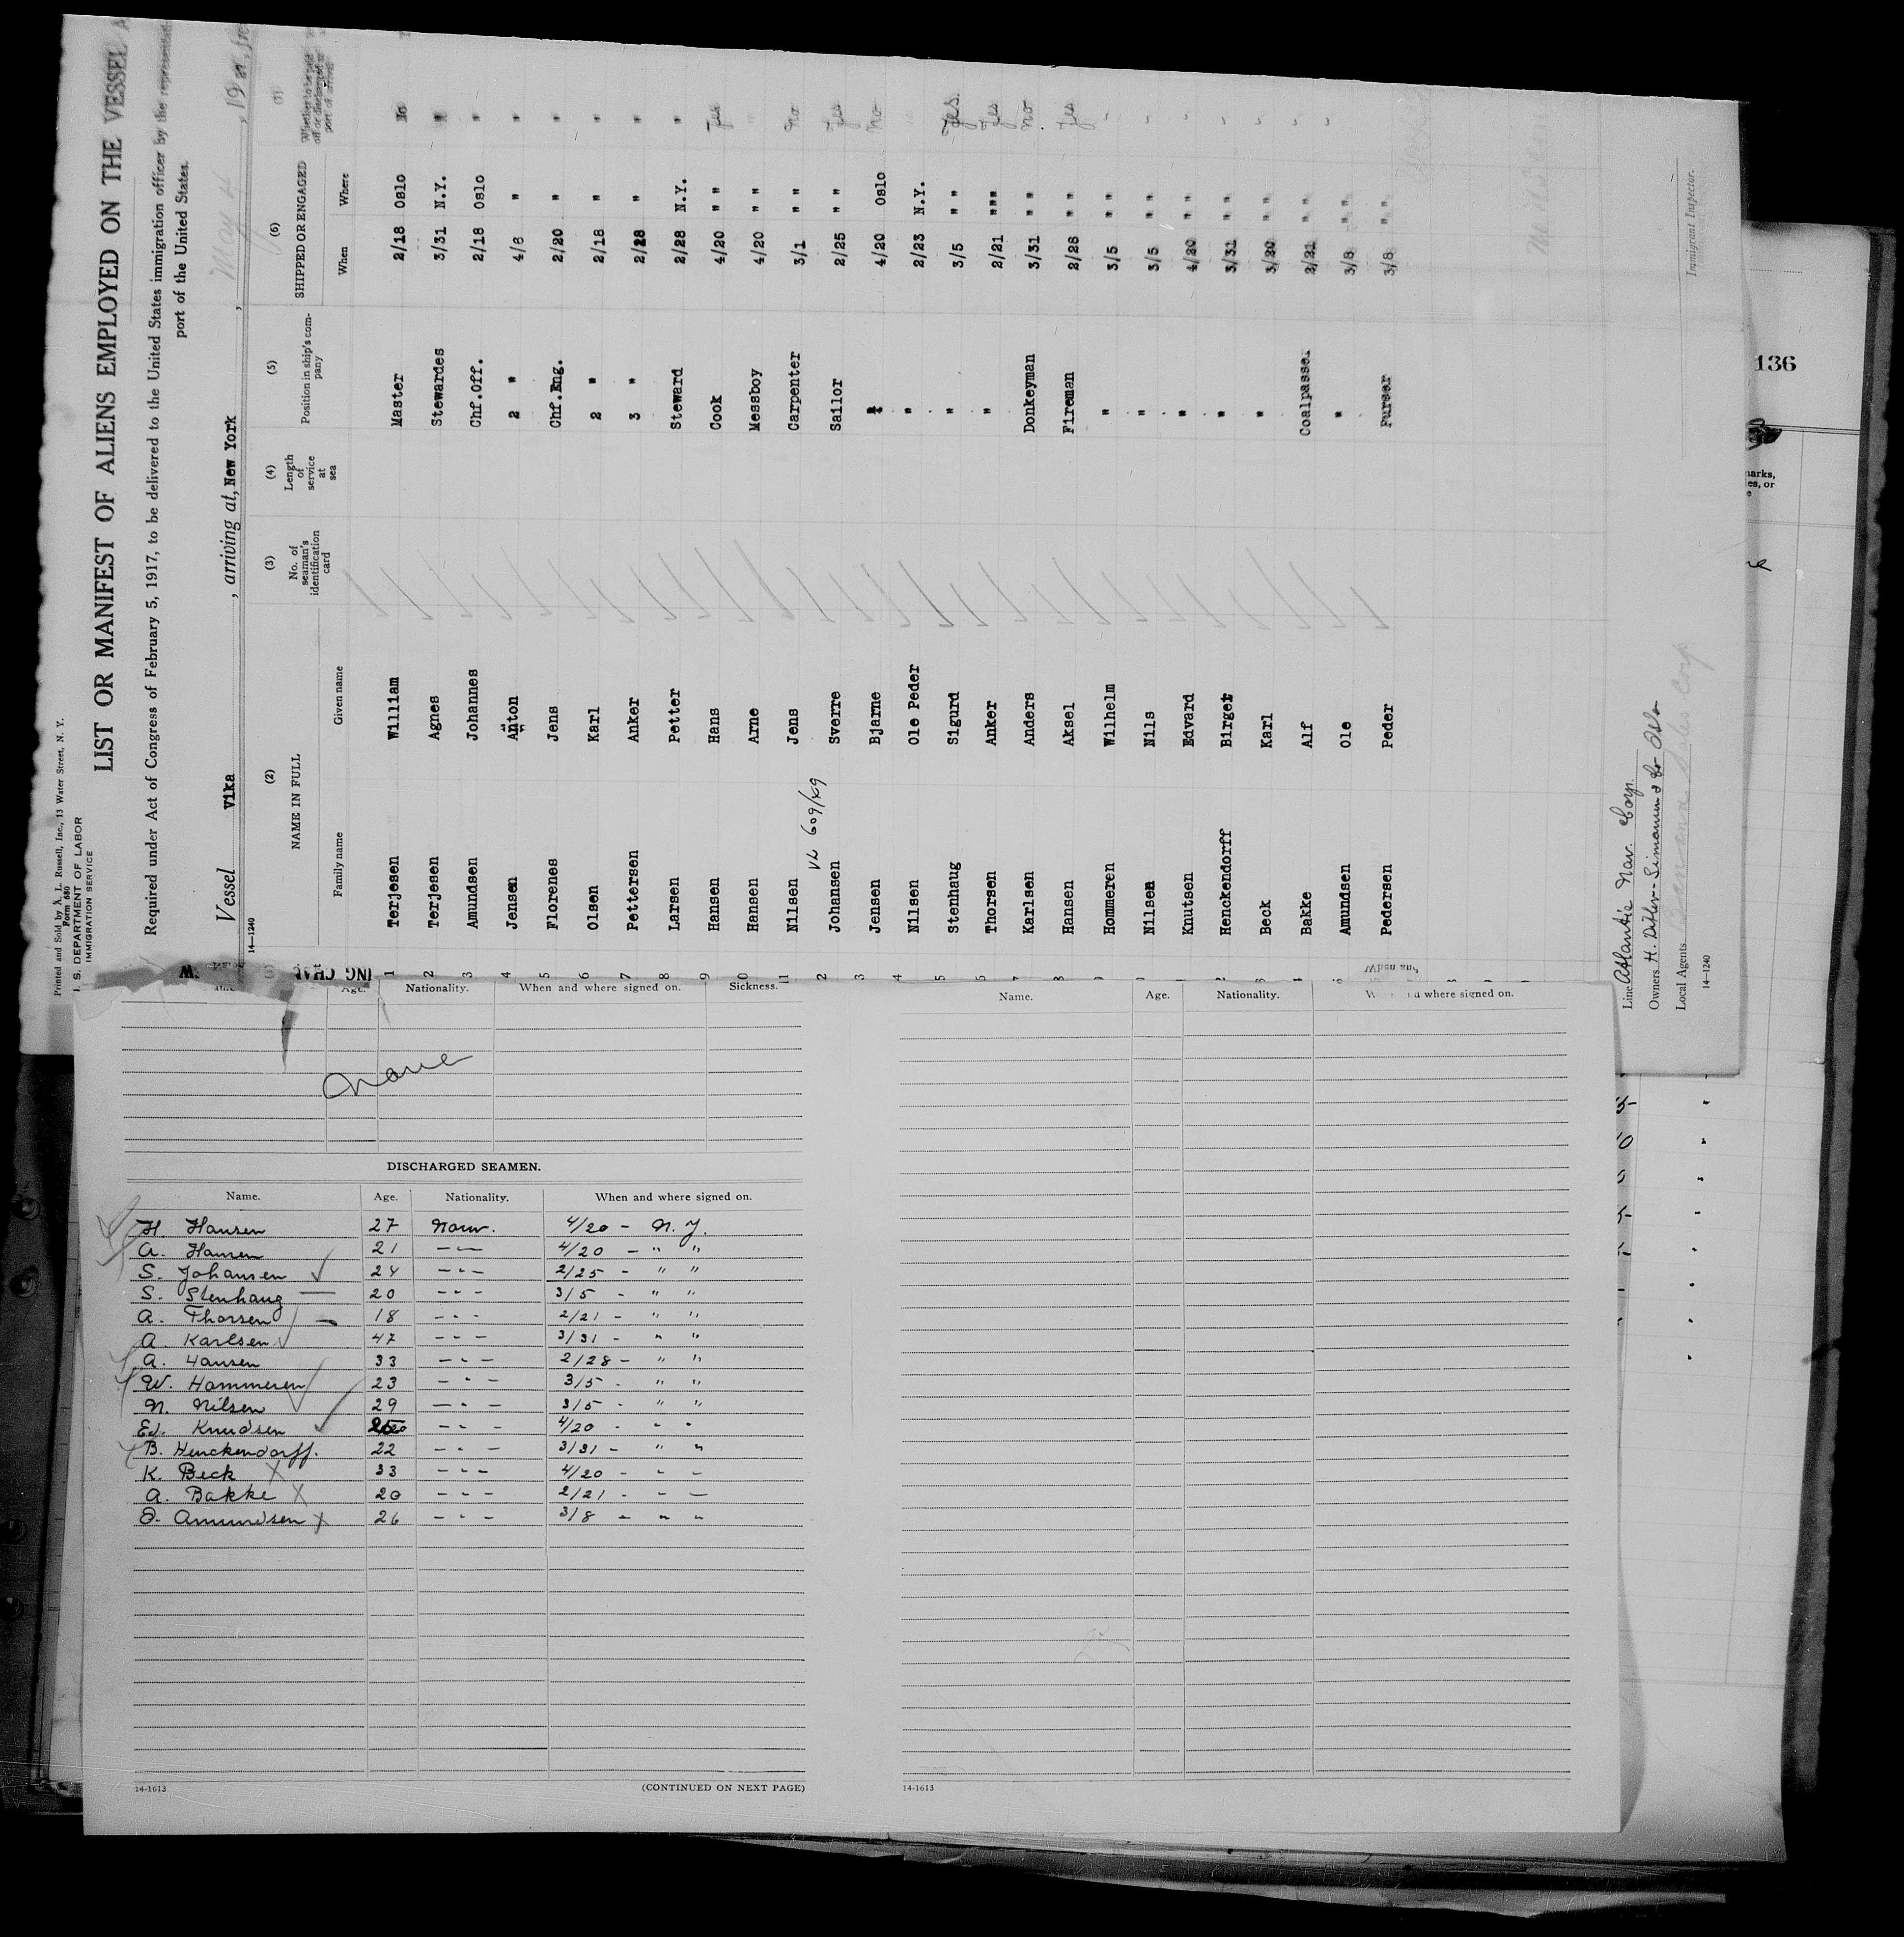 Printed and Sold by A. L. Russell, Inc., 13 Water Street, N. Y.
Form 680
S. DEPARTMENT OF LABOR
IMMIGRATION SERVICE
LIST OR MANIFEST OF ALIENS EMPLOYED ON THE VESSEL
Required under Act of Congress of February 5, 1917, to be delivered to the United States immigration officer by the
port of the United States.
Vessel Vika , arriving at, New York , May 4 , 19
14—1240
(2) (3) (4) (5) (6) (7)
NAME IN FULL No. of seaman's identification card Length of service at sea Position in ship's company SHIPPED OR ENGAGED Whether to be paid off or discharged at port of arrival
Family name Given name When Where
1 Terjesen William Master 2/18 Oslo No
2 Terjesen Agnes Stewardes 3/31 N.Y. "
3 Amundsen Johannes Chf.Off. 2/18 Oslo "
4 Jensen Anton 2 " 4/6 " "
5 Florenes Jens Chf.Eng. 2/20 " "
6 Olsen Karl 2 " 2/18 " "
7 Pettersen Anker 3 " 2/28 " "
8 Larsen Petter Steward 2/28 N.Y. "
9 Hansen Hans Cook 4/20 " " Yes
10 Hansen Arne Messboy 4/20 " " "
11 Nilsen Jens Carpenter 3/1 " " No
VL 609/49
2 Johansen Sverre Sailor 2/25 " " Yes
3 Jensen Bjarne " 4/20 Oslo No
4 Nilsen Ole Peder " 2/23 N.Y. "
5 Stenhaug Sigurd " 3/5 " " Yes.
Thorsen Anker " 2/21 """ Yes
Karlsen Anders Donkeyman 3/31 " " No.
Hansen Aksel Fireman 2/28 " " Yes
Hommeren Wilhelm " 3/5 " "
Nilsen Nils " 3/5 " "
Knutsen Edvard " 4/20 " "
Henckendorff Birger " 3/31 " "
Beck Karl " 3/20 " "
Bakke Alf Coalpasser 2/21 " "
Amundsen Ole " 3/8 " "
Pedersen Peder Purser 3/8 " "
Line Atlantic Nav. Corp.
Owners H. Ditlev-Simonsen & Co Oslo
Local Agents
Immigrant Inspector.
14—1240
136
Age. Nationality. When and where signed on. Sickness.
None
DISCHARGED SEAMEN.
Name. Age. Nationality. When and where signed on.
H. Hansen 27 Norw. 4/20 - N.Y.
A. Hansen 21 - - - 4/20 - " "
S. Johansen 24 - - - 2/25 - " "
S. Stenhaug 20 - - - 3/5 - " "
A. Thorsen 18 - - - 2/21 - " "
A. Karlsen 47 - - - 3/31 - " "
A. Hansen 33 - - - 2/28 - " "
W. Hommeren 23 - - - 3/5 - " "
N. Nilsen 29 - - - 3/5 - " "
Ed. Knudsen - - - 4/20 - " "
B. Henckendorff. 22 - - - 3/31 - " "
K. Beck X 33 - - - 4/20 - - -
A. Bakke X 20 - - - 2/21 - - -
O. Amundsen X 26 - - - 3/8 - " "
14-1613 (CONTINUED ON NEXT PAGE)
Name. Age. Nationality. where signed on.
14-1613